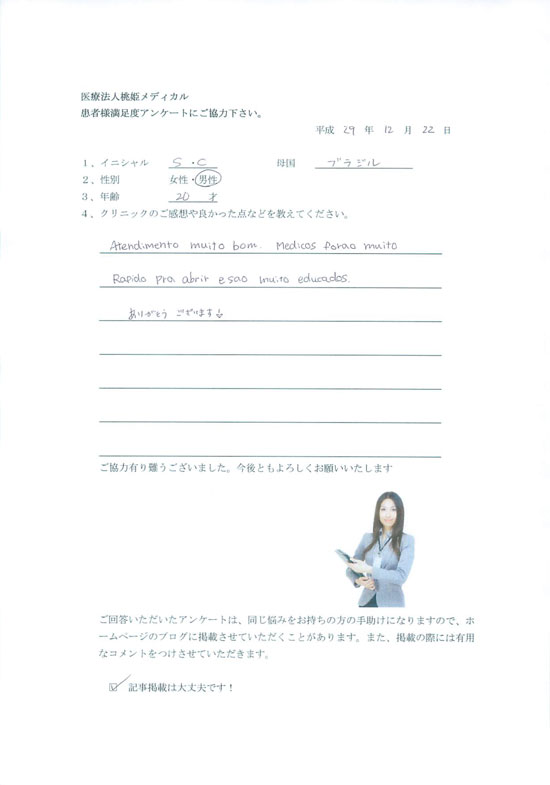 医療法人桃姫メディカル
患者様満足度アンケートにご協力下さい。
平成 29 年 12 月 22 日
1、イニシャル S・C 母国 ブラジル
2、性別 女性・男性
3、年齢 20 才
4、クリニックのご感想や良かった点などを教えてください。
Atendimento muito bom. Medicos forao muito
Rapido pra abrir e sao muito educados.
ありがとう ございます
ご協力有り難うございました。今後ともよろしくお願いいたします
ご回答いただいたアンケートは、同じ悩みをお持ちの方の手助けになりますので、ホ
ームページのブログに掲載させていただくことがあります。また、掲載の際には有用
なコメントをつけさせていただきます。
☑ 記事掲載は大丈夫です！